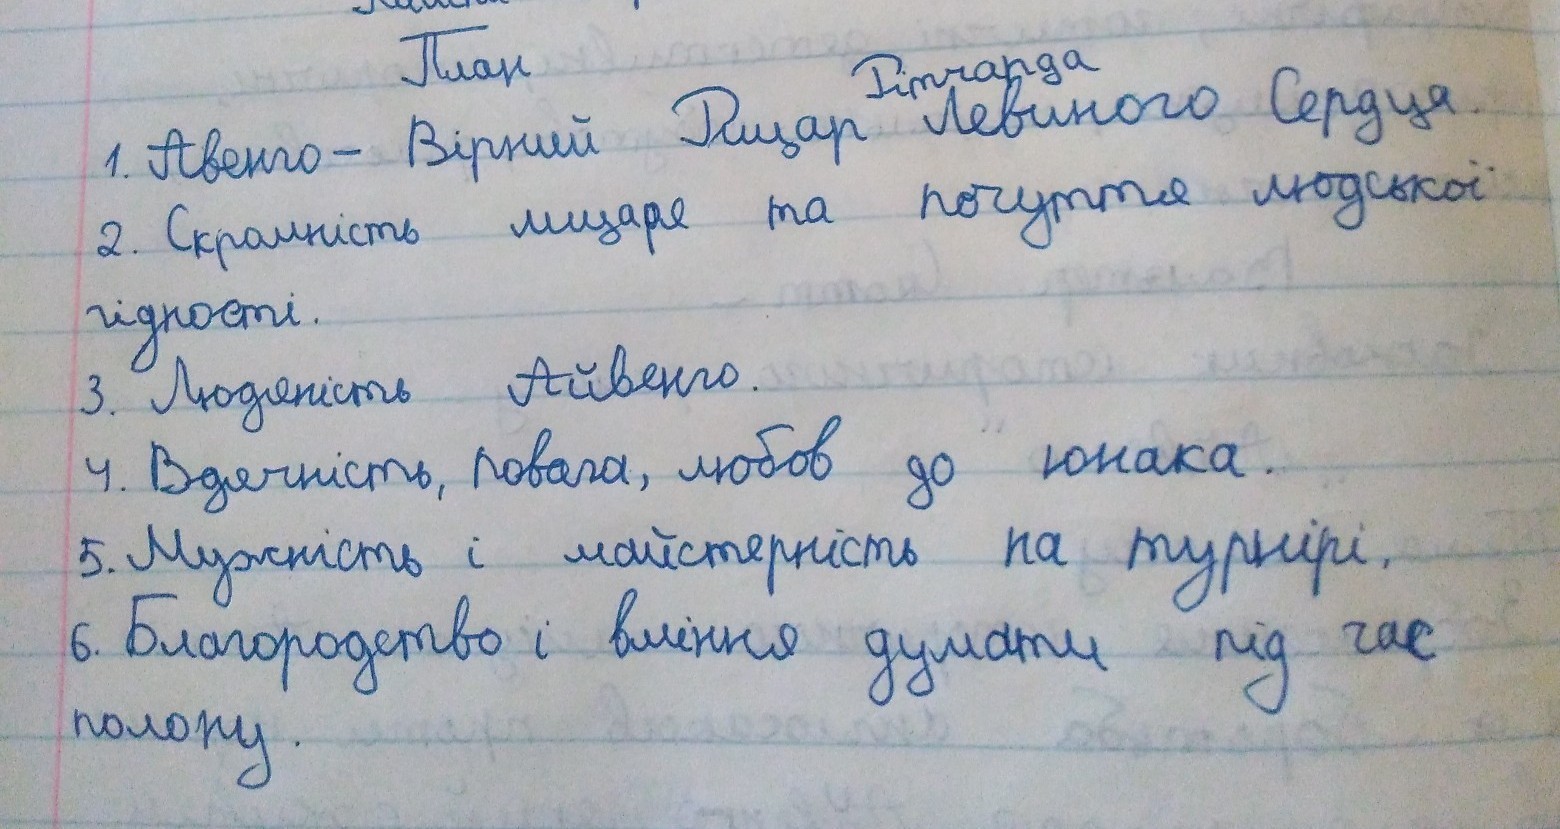 План
Річарда
1. Авенго - Вірний Рицар Левиного Серця.
2. Скромність лицаря та почуття людської
гідності.
3. Людяність Айвенго.
4. Вдячність, повага, любов до юнака.
5. Мужність і майстерність на турнірі.
6. Благородство і вміння думати під час
полону.